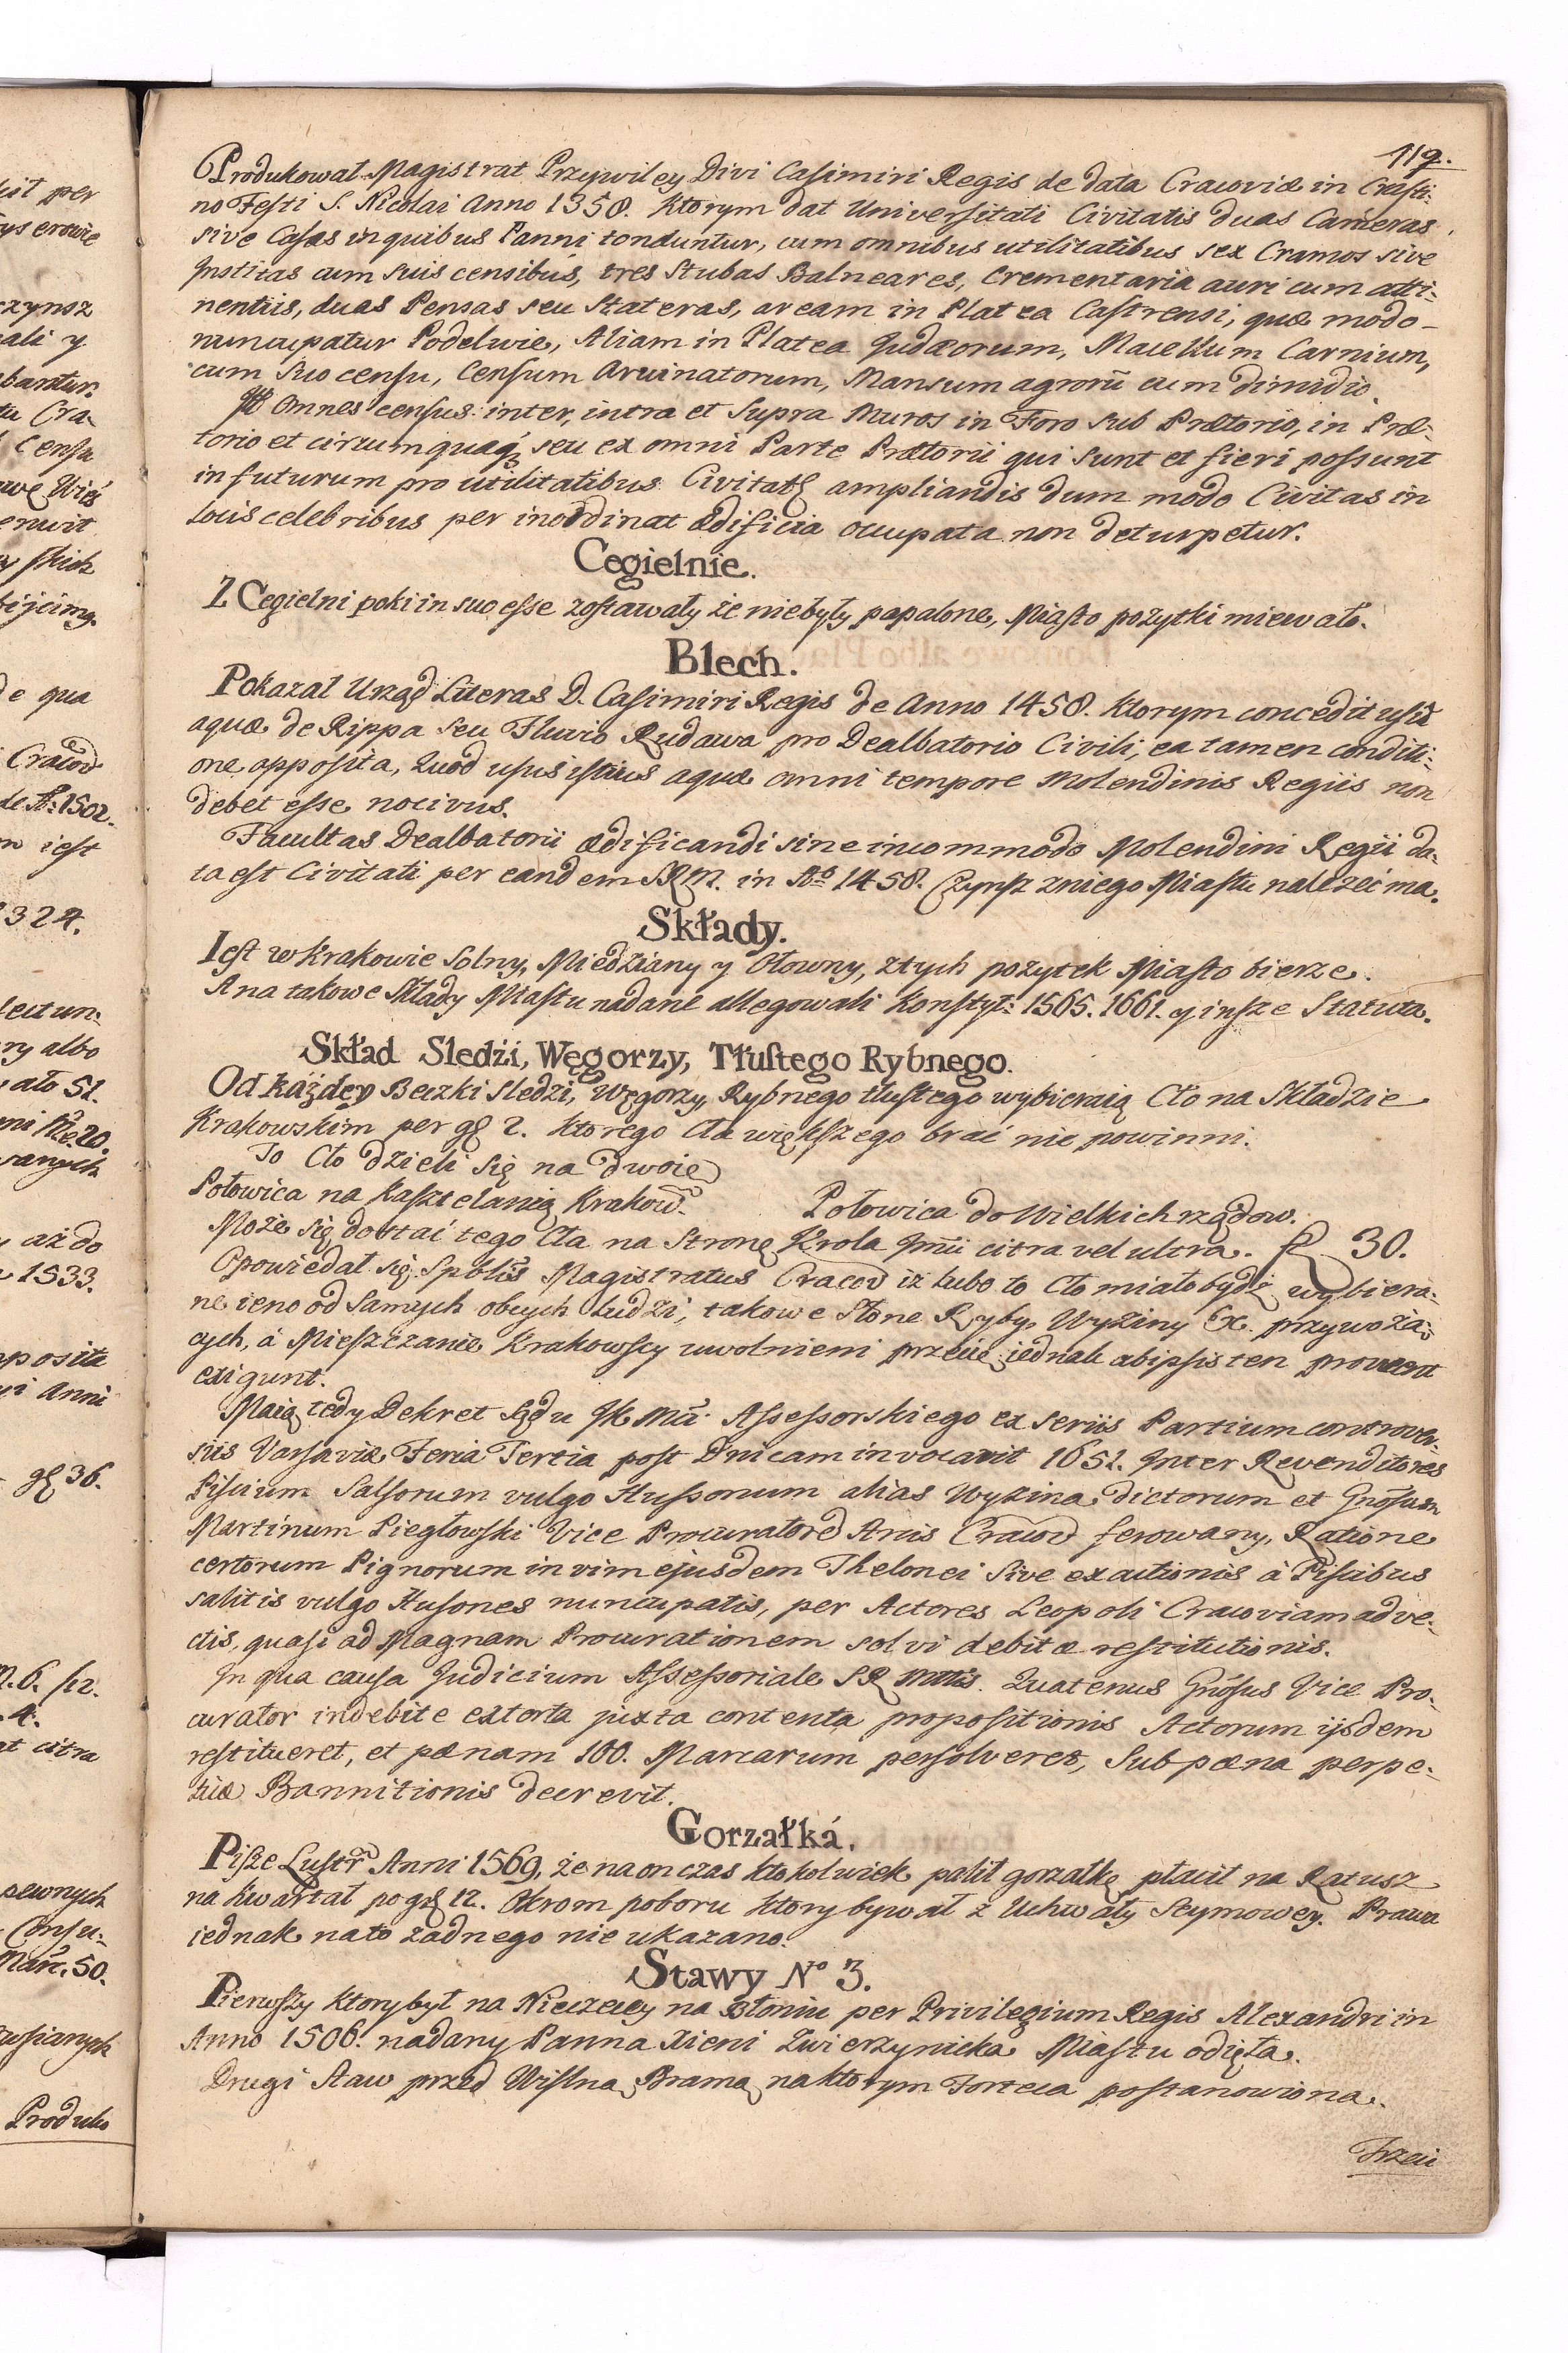 119.
Produkował Magistrat Przywiley Divi Casimiri Regis de data Cracoviæ in Crasti-
no Festi S. Nicolai Anno 1358. Ktorym dat Universitati Civitatis duas Cameras
sive Casas in quibus Panni tonduntur, cum omnibus utilitatibus sex Cramos sive
Institas cum suis censibus, tres Stubas Balneares, Crementaria auri cum atti-
nentiis, duas Pensas seu Stateras, aream in Platea Castrensi, quæ modo
nuncupatur Podelwie, Aliam in Platea Judæorum, Macellum Carnium,
cum suo censu, Censum Arvinatorum, Mansum agrorū cum dimidio.
Itt Omnes census inter, intra et Supra Muros in Foro sub Prætorio, in Præ-
torio et circumquaq₃ seu ex omni Parte Prætorii qui sunt et fieri possunt
in futurum pro utilitatibus Civitatz ampliandis dum modo Civitas in
locis celebribus per inordinat ædificia occupata non deturpetur.
Cegielnie.
Z Cegielni poki in suo esse zostawały że niebyły popalone, Miasto pożytki miewało.
Blech.
Pokazał Urząd Literas D. Casimiri Regis de Anno 1458. Ktorym concedit usū
aquæ de Rippa seu Fluvio Rudawa pro Dealbatorio Civili, ea tamen conditi-
one apposita, Quod usus istius aquæ omni tempore Molendinis Regiis non
debet esse nocivus.
Facultas Dealbatorii ædificandi sine incommodo Molendini Regii da-
ta est Civitati per eandem SRM. in Aō 1458. Czynsz z niego Miastu należeć ma.
Składy.
Iest w Krakowie Solny, Miedziany y Ołowny, z tych pożytek Miasto bierze.
A na takowe Składy Miastu nadane allegowali Konstyt: 1565. 1661. y insze Statuta.
Skład Sledźi, Węgorzy, Tłustego Rybnego.
Od káżdey Beczki Sledzi, Węgorzy, Rybnego tłustego wybieraią Cło na Składzie
Krakowskim per gł 2. ktorego Cła większego brać nie powinni.
To Cło dzieli się na dwoie
Połowica na Kasztelanią Krakow. Połowica do Wielkich rządow.
Może się dostać tego Cła na Stronę Krola Jmći citra vel ultra. fl 30.
Opowiedał się Spbłis Magistratus Cracov iż lubo to Cło miało bydź wybiera-
ne ieno od Samych obcych ludzi, takowe Słone Ryby, Wyżiny &c. przywożą-
cych, á Mieszczanie Krakowscy uwolnieni przecie iednak ab ipsis ten provent
exigunt.
Maią tedy Dekret Sądu JK Mći Assessorskiego ex seriis Partium controver-
siis Varsaviæ Feria Tertia post Dnicam invocavit 1651. Inter Revenditores
Piscium Salsorum vulgo Hussonum alias Wyzina dictorum et Gnōsum
Martinum Piegłowski Vice Procuratorē Arcis Cracov ferowany, Ratione
certorum Pignorum in vim ejusdem Thelonei sive exactionis à Piscibus
salitis vulgo Husones nuncupatis, per Actores Leopoli Cracoviam adve-
ctis, quasi ad Magnam Procurationem solvi debitæ restitutionis.
In qua causa Judicium Assessoriale SR Mttis. Quatenus Gnōsus Vice Pro-
curator indebite extorta juxta contenta propositionis Actorum ijsdem
restitueret, et pænam 100. Marcarum persolveret, Sub pæna perpe-
tuæ Bannitionis decrevit.
Gorzałká.
Pisze Lustr Anni 1569, że na on czas ktokolwiek palił gorzałkę płacił na Ratusz
na Kwartał po gł 12. Okrom poboru ktory bywał z Uchwały Seymowey. Prawa
iednak na to żadnego nie ukazano.
Stawy No 3.
Pierwszy ktory był na Nieczeczy na Błoniu per Privilegium Regis Alexandri in
Anno 1506. nadany Panna Xieni Zwierzynicka Miastu odięła.
Drugi Staw przed Wislną Bramą na ktorym Forteca postanowiona.
Trzeci